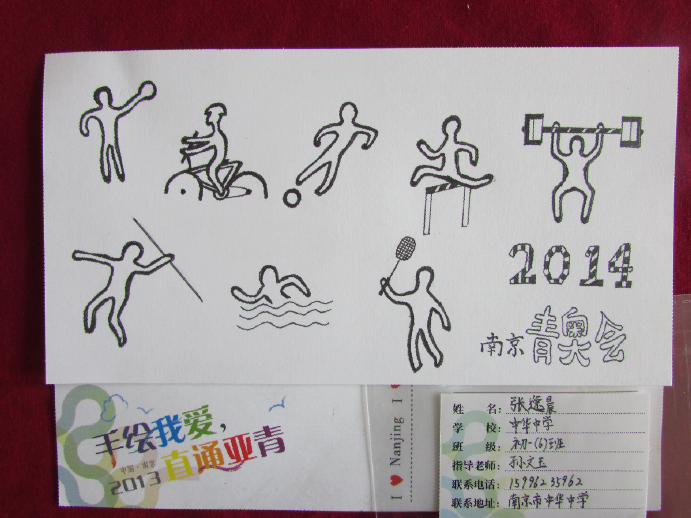 2014
南京青奥会
手绘我爱,
直通亚青
2013
I ♥ Nanjing I ♥
姓 名: 张逸晨
学 校: 中华中学
班 级: 初一(6)班
指导老师: 孙文玉
联系电话: 15996235962
联系地址: 南京市中华中学